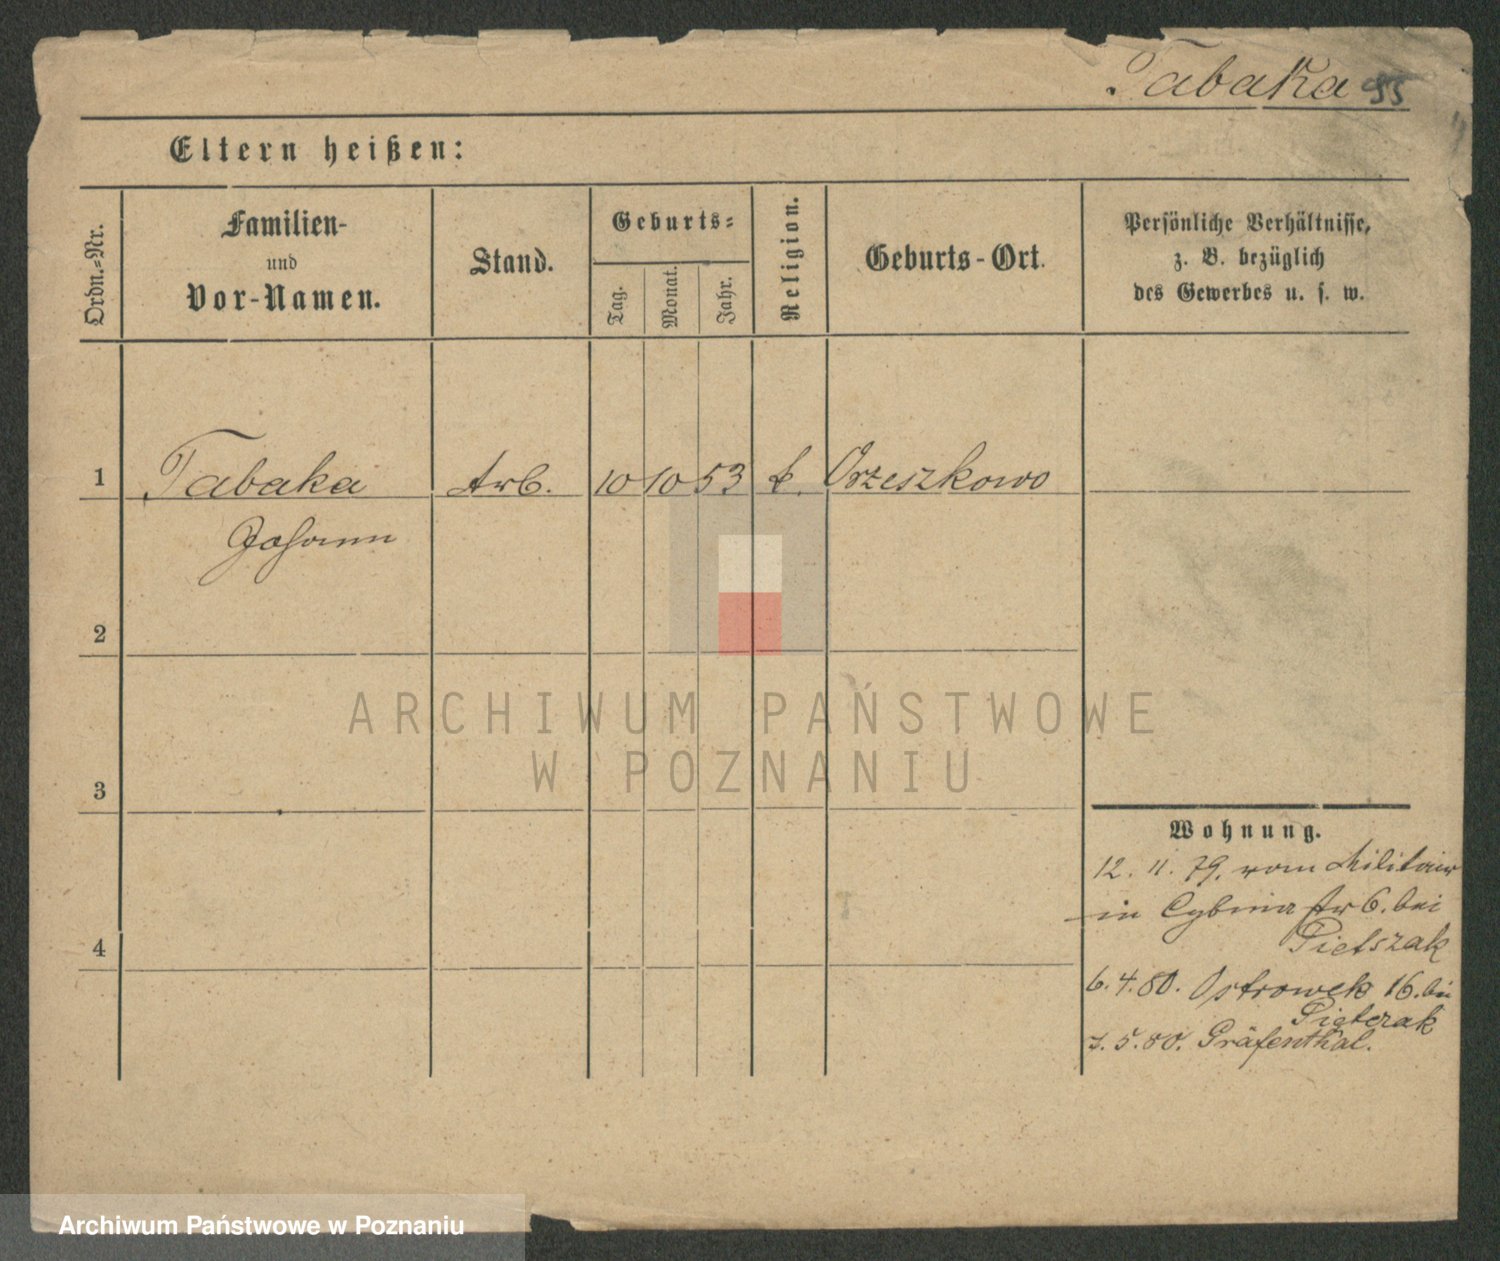 Tabaka 55
Eltern heißen:
Ordn.-Nr.
Familien-
und
Vor-Namen.
Stand.
Geburts-
Tag.
Monat.
Jahr.
Religion.
Geburts-Ort.
Persönliche Verhältnisse,
z. B. bezüglich
des Gewerbes u. s. w.
1 Tabaka Arb. 10 10 53 k. Orzeszkowo
Johann
2
3
4
ARCHIWUM PAŃSTWOWE
W POZNANIU
Wohnung.
12. 11. 79. vom Militair
in Cybina 6. bei
Pietszak
6. 4. 80. Ostrowek 16. bei
Pieterak
5. 80. Gräfenthal.
Archiwum Państwowe w Poznaniu